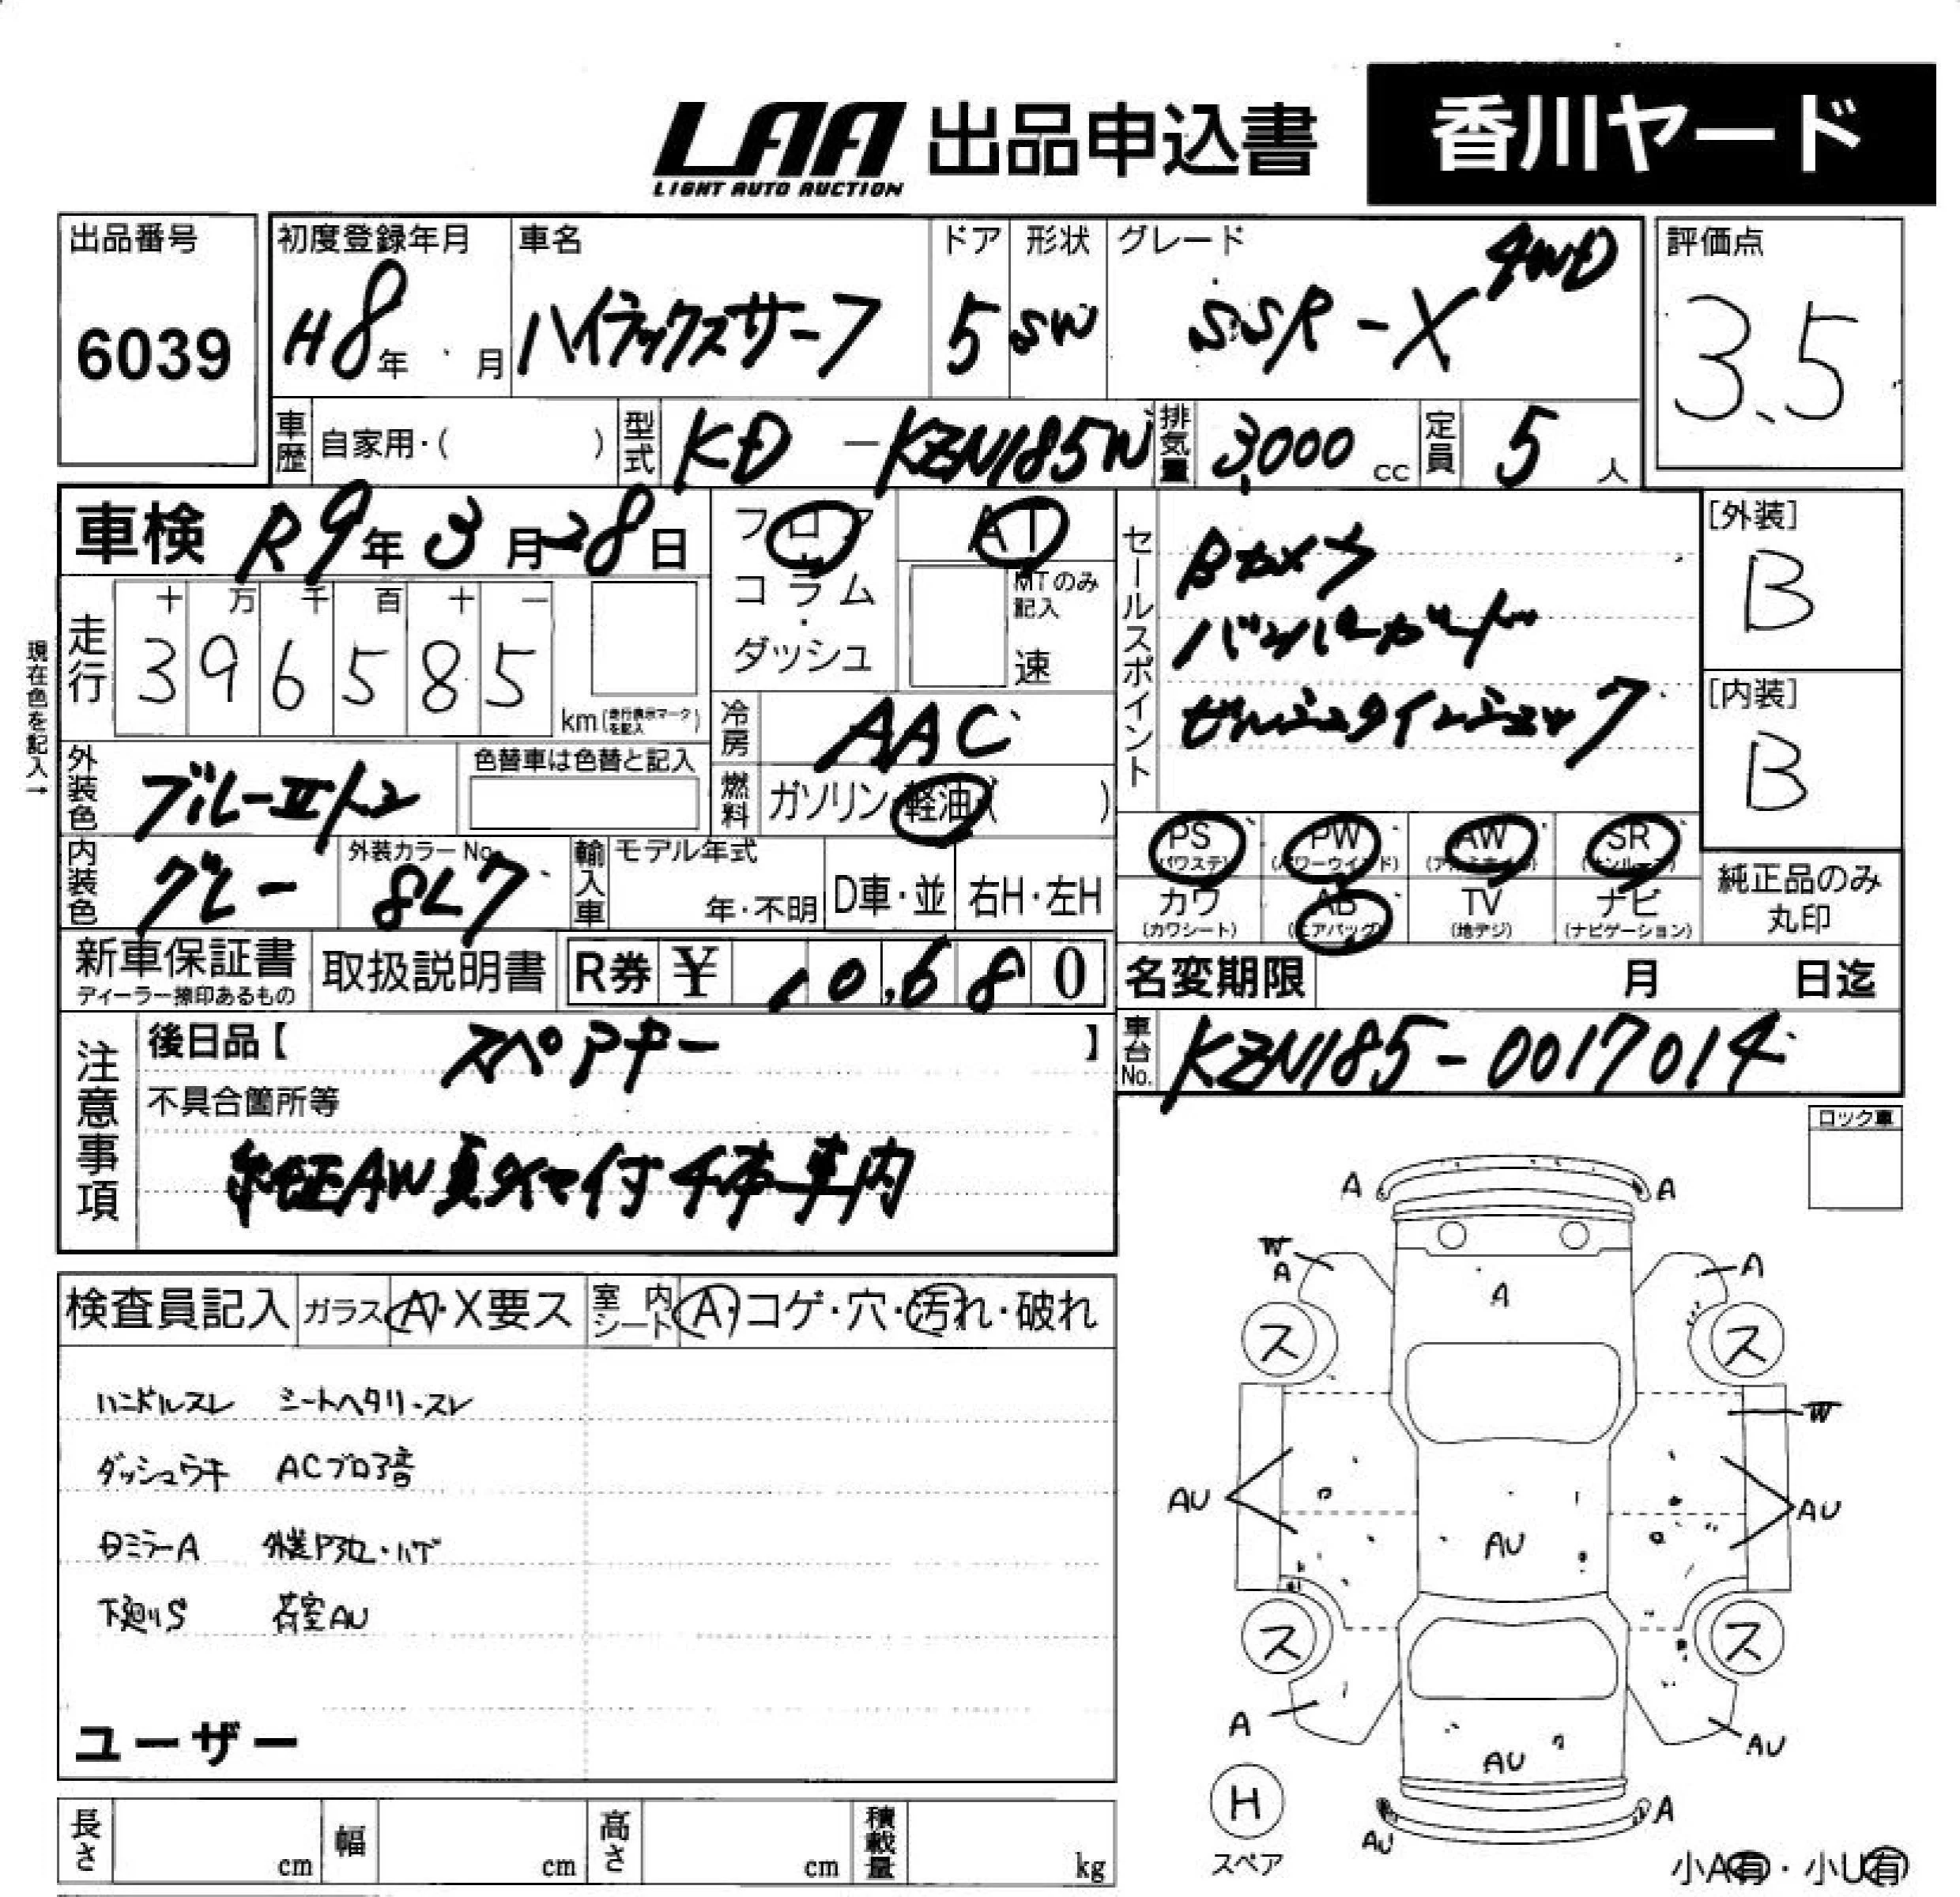 LAA 出品申込書 香川ヤード
LIGHT AUTO AUCTION
出品番号 初度登録年月 車名 ドア 形状 グレード 評価点
6039 H8年 月 ハイラックスサーフ 5 SW SSR-X 4WD 3.5
車歴 自家用・( ) 型式 KD-KZN185W 排気量 3,000 cc 定員 5 人
車検 R9年3月28日
フロア AT
コラム MTのみ記入
ダッシュ 速
現在色を記入→
走行 十 万 千 百 十 一
3 9 6 5 8 5 km(走行表示マークを記入)
冷房 AAC
燃料 ガソリン・軽油( )
外装色 ブルーⅡトン 色替車は色替と記入
内装色 グレー 外装カラーNo. 8L7
輸入車 モデル年式 年・不明 D車・並 右H・左H
セールスポイント
Bカメラ
バンパーガード
[外装] B
[内装] B
PS (パワステ) PW (パワーウインド) AW (アルミホイル) SR (サンルーフ)
カワ (カワシート) AB (エアバッグ) TV (地デジ) ナビ (ナビゲーション)
純正品のみ
丸印
新車保証書 取扱説明書 R券 ¥ 10,680
ディーラー捺印あるもの
名変期限 月 日迄
車台No. KZN185-0017014
注意事項
後日品【 スペアキー 】
不具合箇所等
純正AW夏タイヤ付4本車内
ロック車
検査員記入 ガラス A・X要ス 室内シート A・コゲ・穴・汚れ・破れ
ハンドルスレ シートヘタリ・スレ
ダッシュウキ ACブロア音
日ミラーA
下廻りS 荷室AU
ユーザー
長さ cm 幅 cm 高さ cm 積載量 kg
A A
W
A A
A
ス ス
W
AU AU
AU
ス ス
A AU
AU
H
スペア
AU A
小A有・小U有